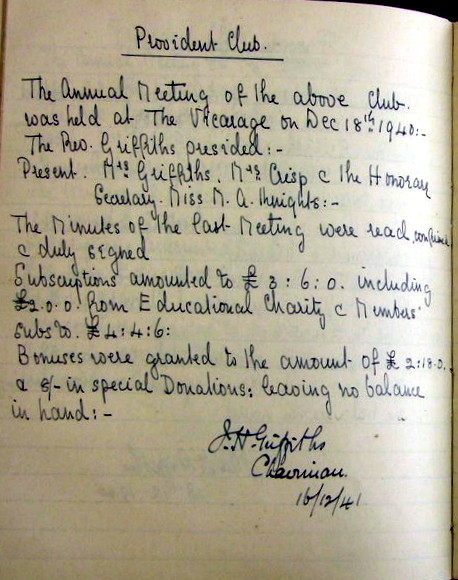 Provident Club.
The Annual Meeting of the above Club.
was held at The Vicarage on Dec 18th 1940:-
The Rev. Griffiths presided:-
Present. Mrs Griffiths. Mrs Crisp & the Honorary
Secretary. Miss M. A. Knights:-
The Minutes of the last Meeting were read,
& duly signed
Subscriptions amounted to £ 3 : 6 : 0. including
£2.0.0. from Educational Charity & Members'
Subs to. £4:4:6:
Bonuses were granted to the amount of £ 2:18.0.
& 8/- in special Donations: leaving no balance
in hand:-
J. H. Griffiths
Chairman.
16/12/41